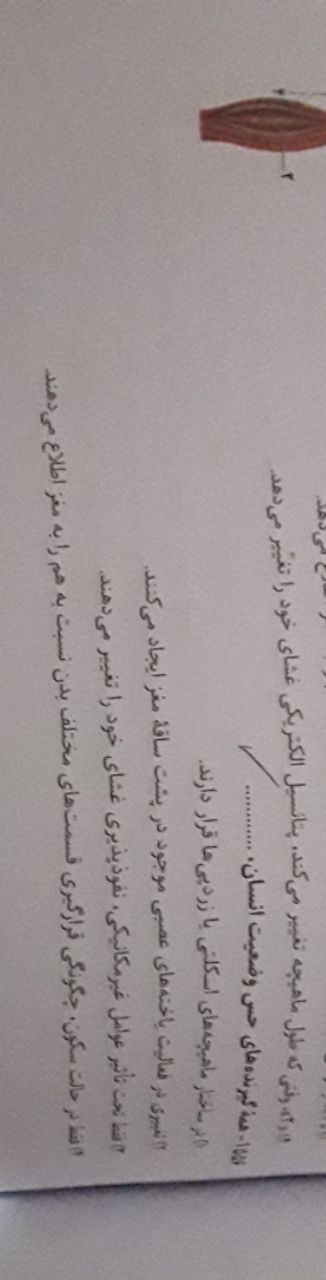 ۳
۴) وقتی که طول ماهیچه تغییر می‌کند، پتانسیل الکتریکی غشای خود را تغییر می‌دهد.
همۀ گیرنده‌های حس وضعیت انسان، ............
۱) در ساختار ماهیچه‌های اسکلتی یا زردپی‌ها قرار دارند.
۲) تغییری در فعالیت یاخته‌های عصبی موجود در پشت ساقۀ مغز ایجاد می‌کنند.
۳) فقط تحت تأثیر عوامل غیرمکانیکی، نفوذپذیری غشای خود را تغییر می‌دهند.
۴) فقط در حالت سکون، چگونگی قرارگیری قسمت‌های مختلف بدن نسبت به هم را به مغز اطلاع می‌دهند.